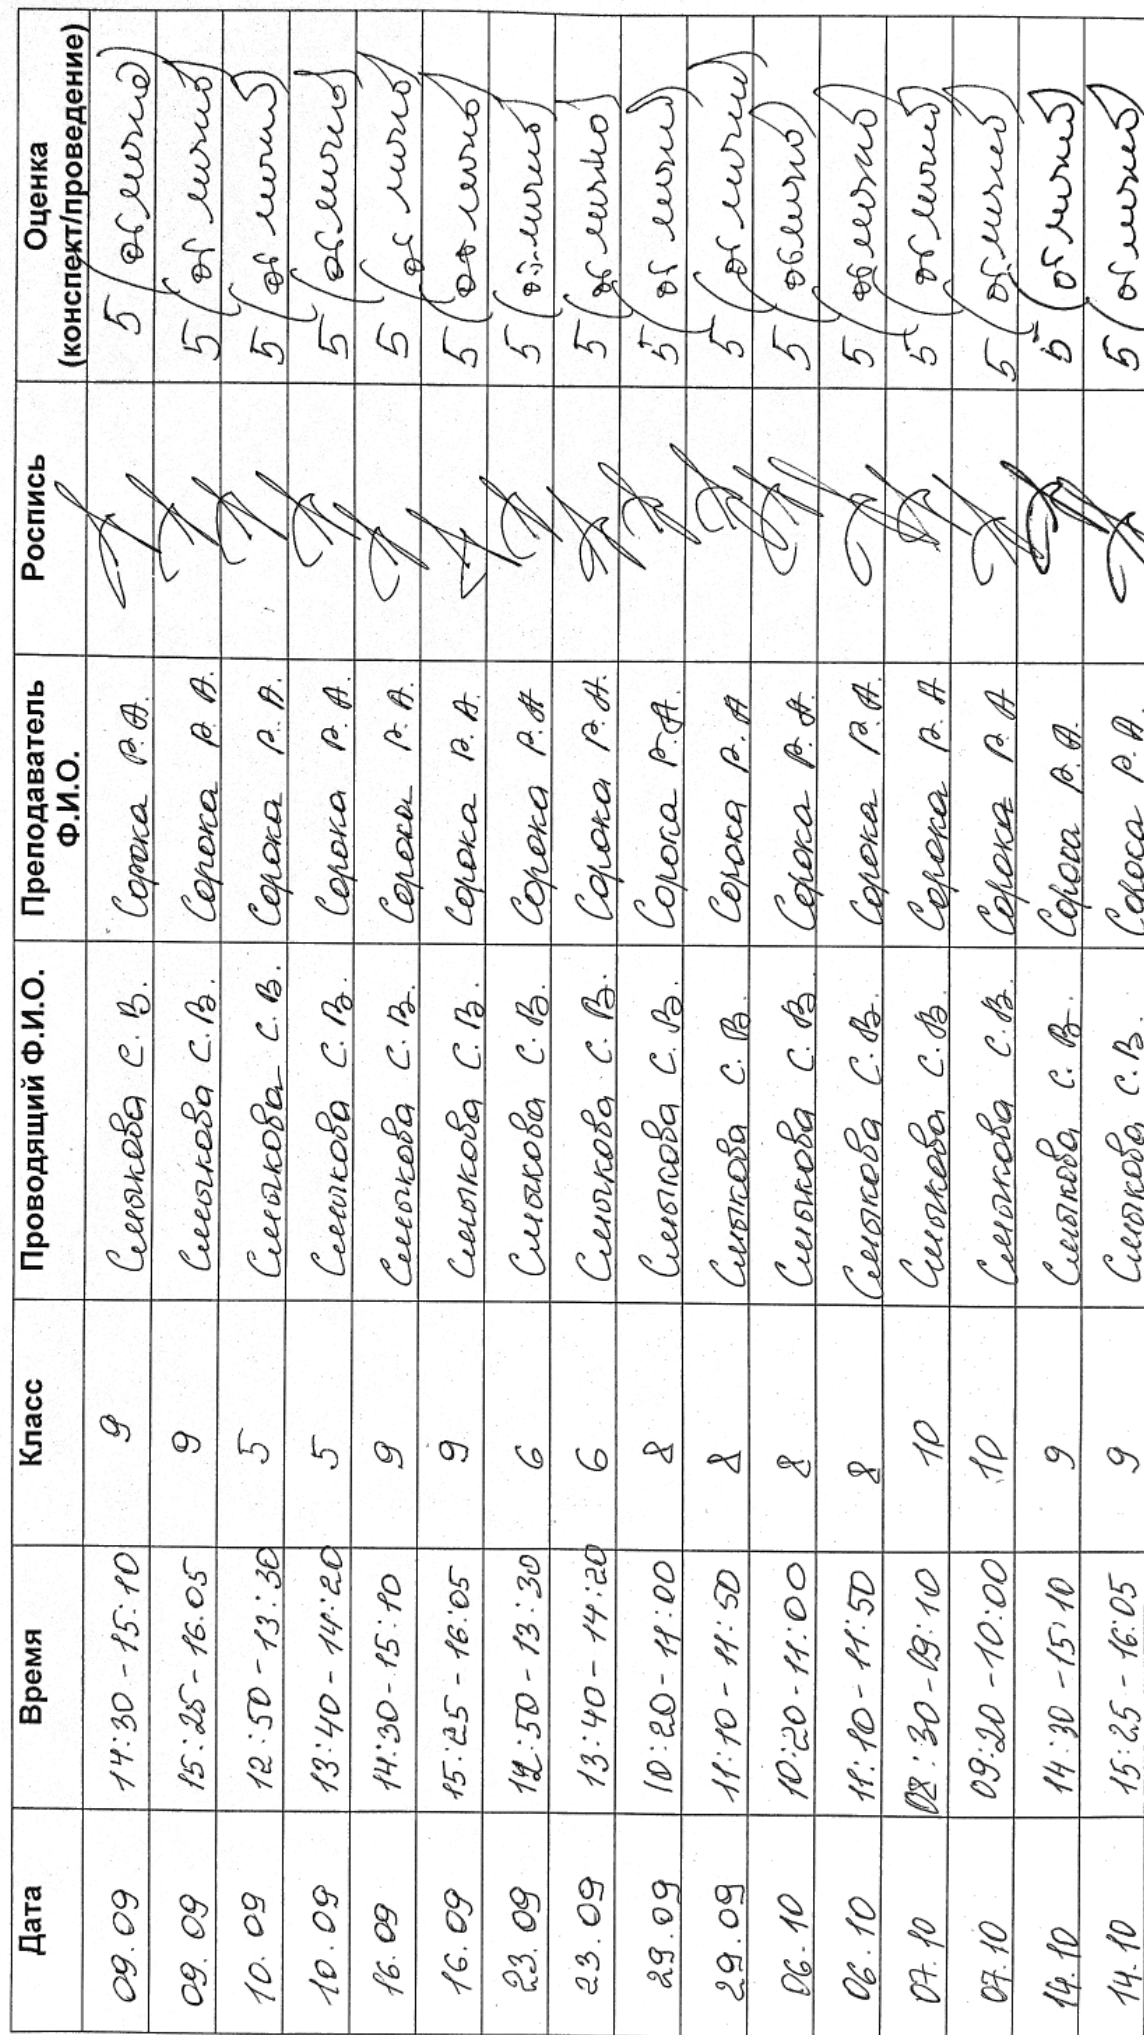 Дата Время Класс Проводящий Ф.И.О. Преподаватель Ф.И.О. Роспись Оценка (конспект/проведение)
09.09 14:30-15:10 9 Смыкова С.В. Сорока Р.А. 5 (отлично)
09.09 15:25-16.05 9 Смыкова С.В. Сорока Р.А. 5 (отлично)
10.09 12:50-13:30 5 Смыкова С.В. Сорока Р.А. 5 (отлично)
10.09 13:40-14:20 5 Смыкова С.В. Сорока Р.А. 5 (отлично)
16.09 14:30-15:10 9 Смыкова С.В. Сорока Р.А. 5 (отлично)
16.09 15:25-16:05 9 Смыкова С.В. Сорока Р.А. 5 (отлично)
23.09 12:50-13:30 6 Смыкова С.В. Сорока Р.А 5 (отлично)
23.09 13:40-14:20 6 Смыкова С.В. Сорока Р.А. 5 (отлично
29.09 10:20-11:00 8 Смыкова С.В. Сорока Р.А. 5 (отлично)
29.09 11:10-11:50 8 Смыкова С.В. Сорока Р.А 5 (отлично)
06.10 10:20-11:00 8 Смыкова С.В. Сорока Р.А. 5 (отлично)
06.10 11:10-11:50 8 Смыкова С.В. Сорока Р.А. 5 (отлично)
07.10 08:30-09:10 10 Смыкова С.В. Сорока Р.А 5 (отлично)
07.10 09:20-10:00 10 Смыкова С.В. Сорока Р.А 5 (отлично)
14.10 14:30-15:10 9 Смыкова С.В. Сорока Р.А. 5 (отлично)
14.10 15:25-16:05 9 Смыкова С.В. Сорока Р.А. 5 (отлично)